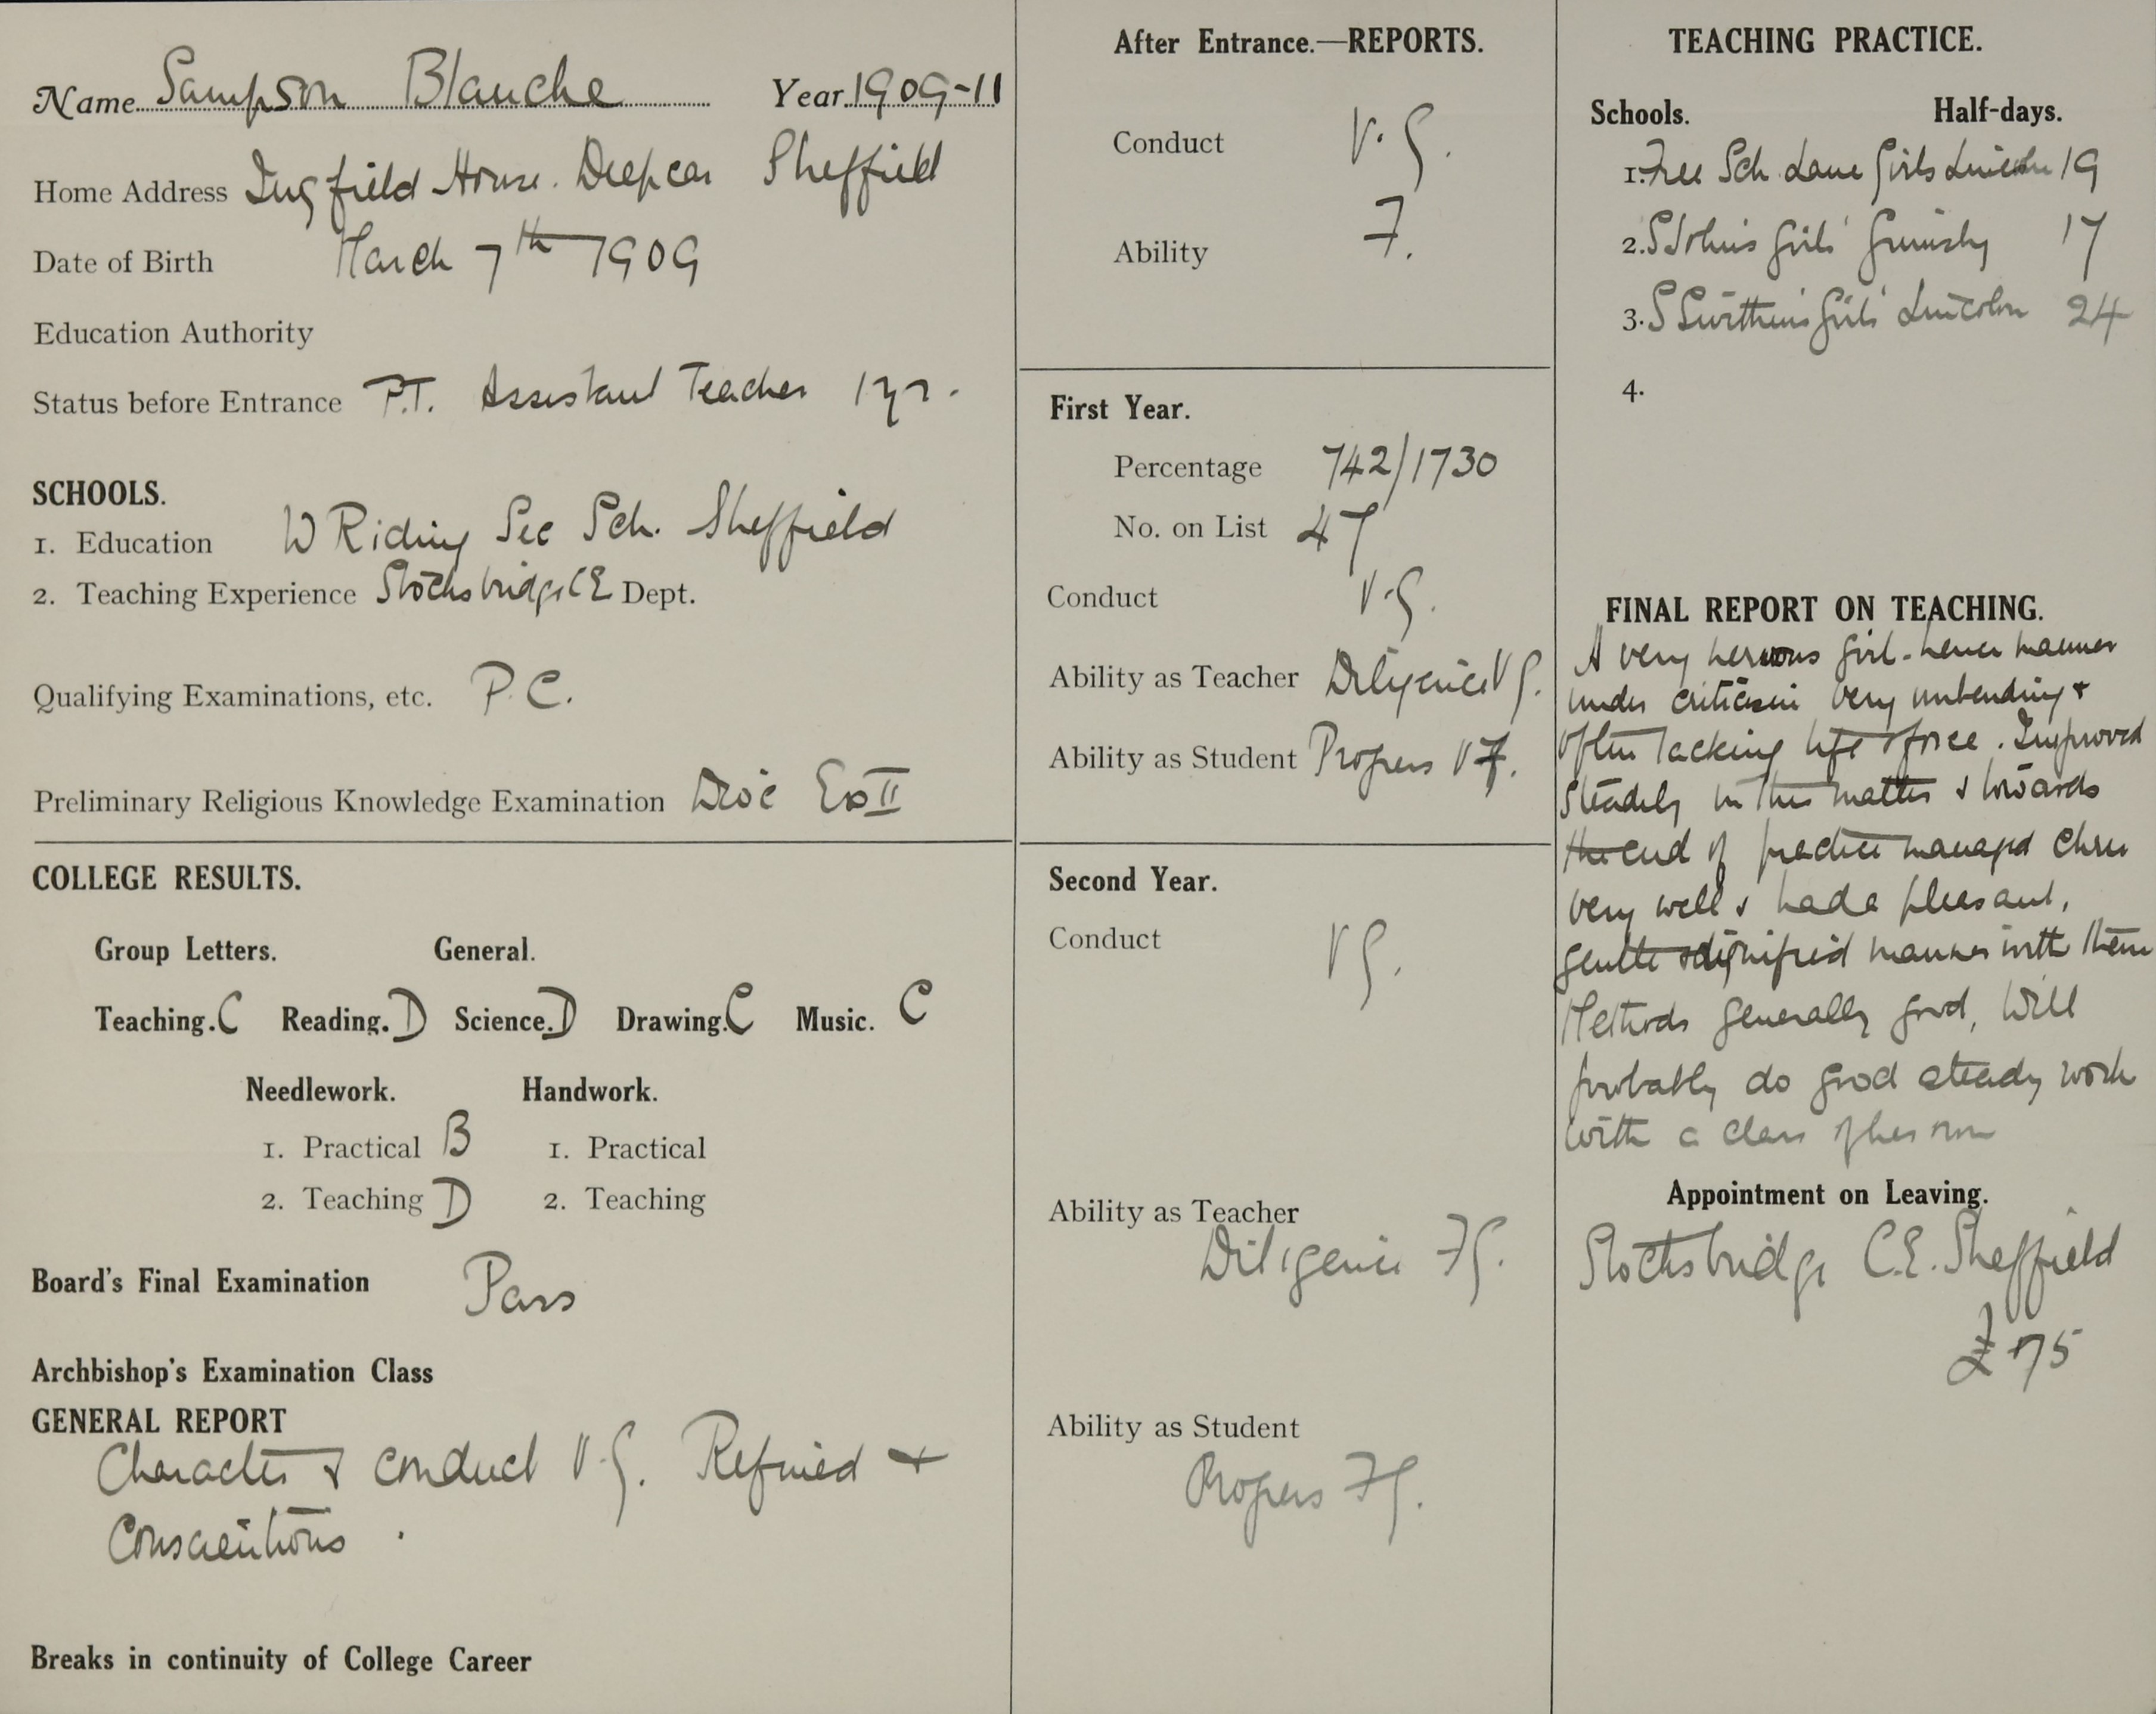 Name Sampson Blanche Year 1909-11
Home Address Ingfield House. Deepcar Sheffield
Date of Birth March 7th 1909
Education Authority
Status before Entrance P.T. Assistant Teacher 1 yr.
SCHOOLS.
1. Education W Riding Sec Sch. Sheffield
2. Teaching Experience Stocksbridge CE Dept.
Qualifying Examinations, etc. P.C.
Preliminary Religious Knowledge Examination Dioc Ex II
COLLEGE RESULTS.
Group Letters. General.
Teaching. C Reading. D Science. D Drawing. C Music. C
Needlework. Handwork.
1. Practical B 1. Practical
2. Teaching D 2. Teaching
Board's Final Examination Pass
Archbishop's Examination Class
GENERAL REPORT
Character & conduct V.G. Refined +
Conscientious.
Breaks in continuity of College Career
After Entrance.—REPORTS.
Conduct V.G.
Ability F.
First Year.
Percentage 742/1730
No. on List 47
Conduct V.G.
Ability as Teacher Diligence V G.
Ability as Student Progress V F.
Second Year.
Conduct V G.
Ability as Teacher
Diligence F G.
Ability as Student
Progress F G.
TEACHING PRACTICE.
Schools. Half-days.
1. Free Sch. Lane Girls Lincoln 19
2. S John's Girls' Grimsby 17
3. S Swithin's Girls' Lincoln 24
4.
FINAL REPORT ON TEACHING.
A very nervous girl - hence manner
under criticism very unbending &
often lacking life & force. Improved
steadily in this matter & towards
the end of practice managed chn
very well & had a pleasant,
gentle & dignified manner with them
Methods generally good, Will
probably do good steady work
with a class of her own
Appointment on Leaving.
Stocksbridge C.E. Sheffield
£75